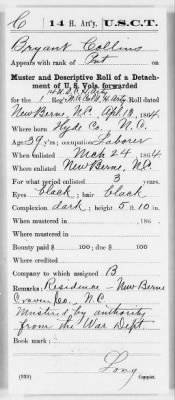 C | 14 H. Art'y. | U.S.C.T.
Bryant Collins
Appears with rank of Pvt on
Muster and Descriptive Roll of a Detach-
ment of U. S. Vols. forwarded
14 U.S.C.H. Arty
for the 1 Reg't N.C. Col'd H. Arty. Roll dated
New Berne, N.C. Apl. 18, 1864.
Where born Hyde Co., N.C.
Age 39 y'rs; occupation Laborer
When enlisted Mch 24, 1864
Where enlisted New Berne, N.C.
For what period enlisted 3 years.
Eyes black; hair black
Complexion dark; height 5 ft. 10 in.
When mustered in , 186
Where mustered in
Bounty paid $ 100; due $ 100
Where credited
Company to which assigned B
Remarks: Residence - New Berne
Craven Co., N.C.
Mustered by authority
from the War Dept.
Book mark:
Long
(339) Copyist.